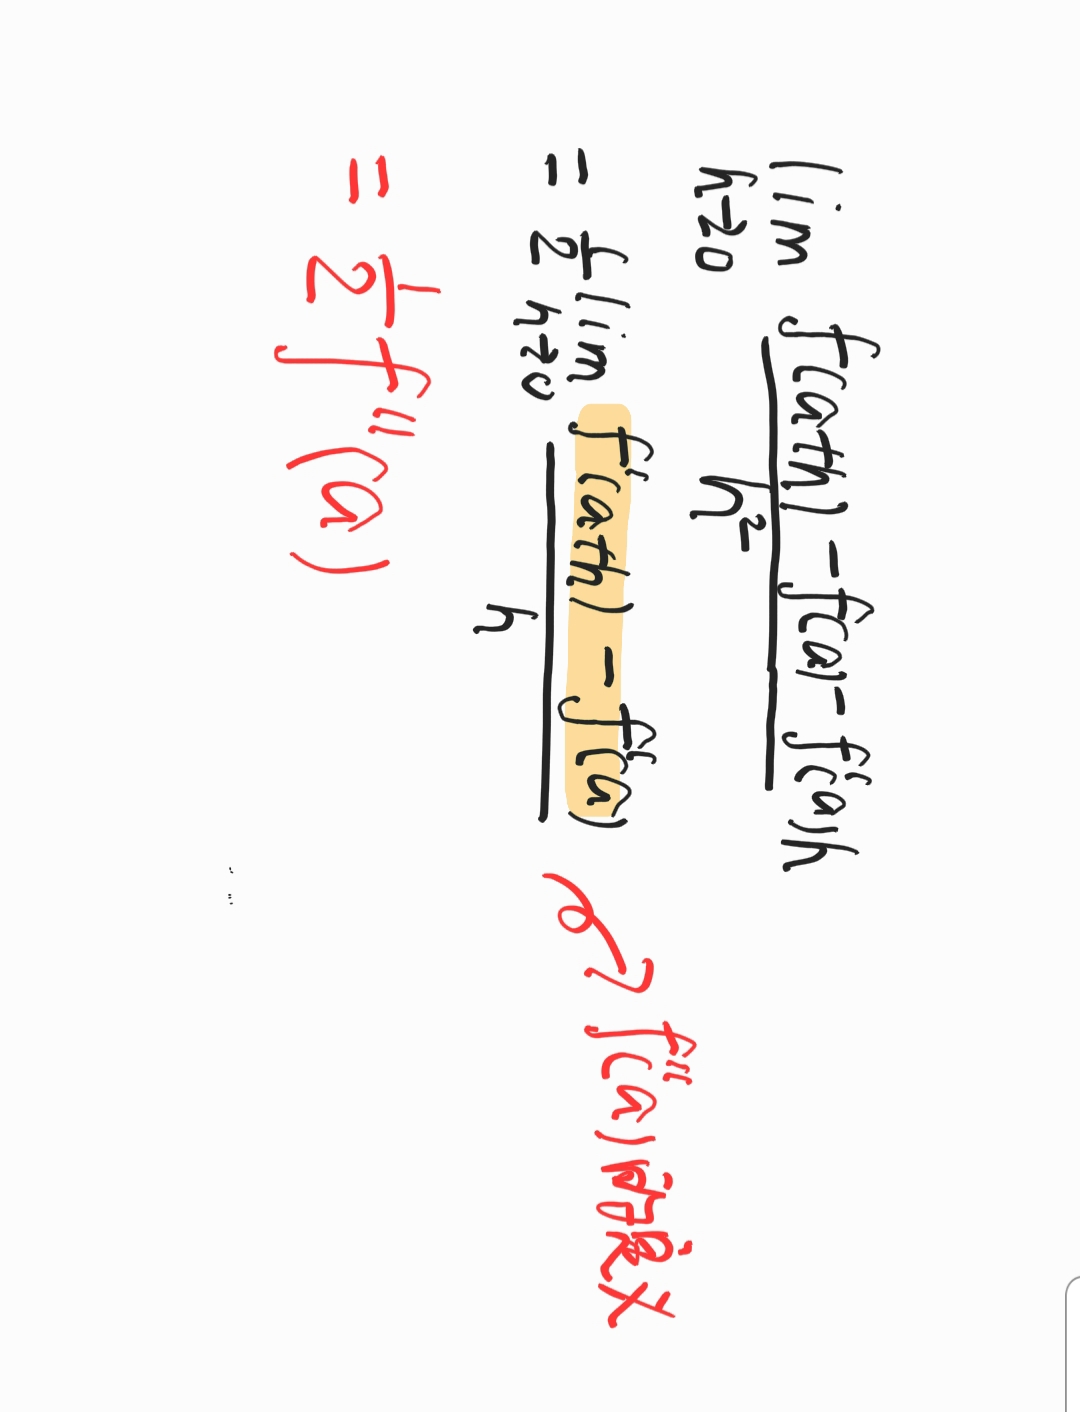 lim h→0 (f(a+h) - f(a) - f'(a)h) / h²
= 1/2 lim h→0 (f'(a+h) - f'(a)) / h f''(a) 的定义
= 1/2 f''(a)